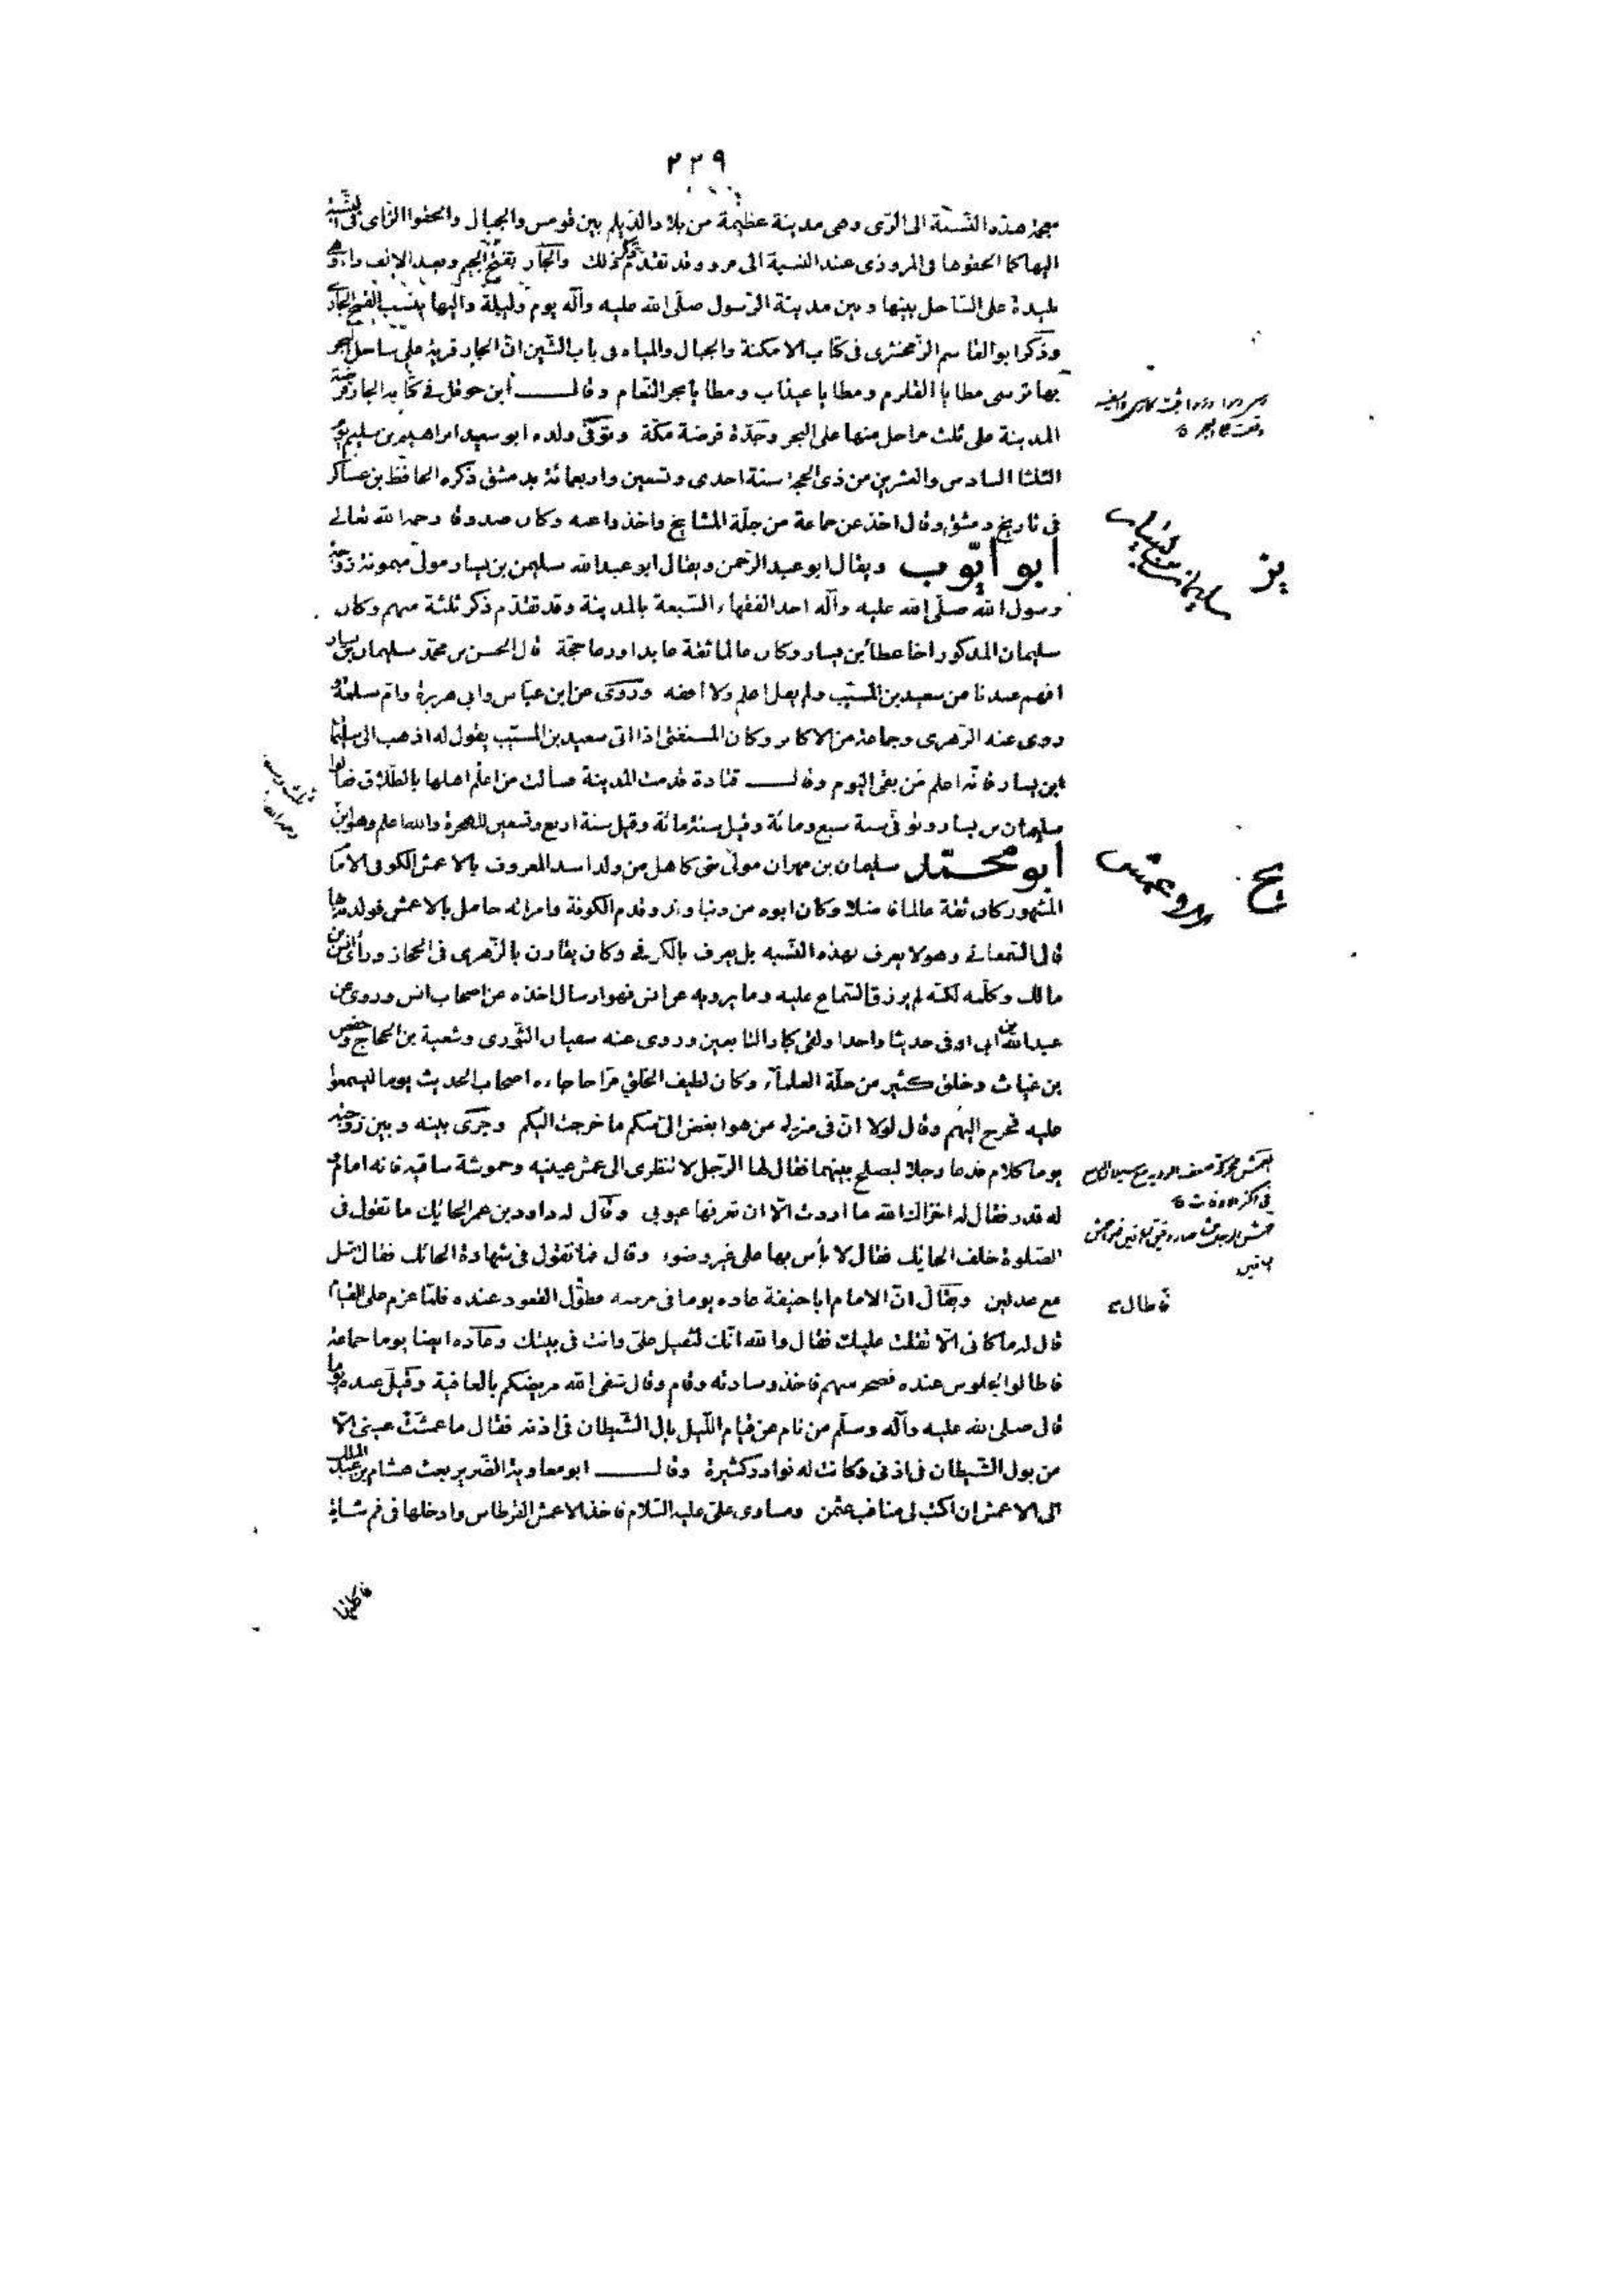 ٢٣٩
معجمة هذه النسبة الى الرّى وهى مدينة عظيمة من بلاد الديلم بين قومس والجبال والحقوا الزاى فى النسبة
اليها كما الحقوها فى المروزى عند النسبة الى مرو وقد تقدّم ذكر ذلك والجار بفتح الجيم وبعد الالف راء وهى
بليدة على الساحل بينها وبين مدينة الرّسول صلّى الله عليه وآله يوم وليلة واليها ينسب القمح الجارى
وذكر ابو القاسم الزمخشرى فى كتاب الامكنة والجبال والمياه فى باب الشين انّ الجار قرية على ساحل البحر
بها ترسى مطايا القلزم ومطايا عيذاب ومطايا بحر النعام وقال ابن حوقل فى كتابه الجار فرضة
المدينة على ثلث مراحل منها على البحر وجدّة فرضة مكّة وتوفّى ولده ابو سعيد ابراهيم بن سليم يوم
الثلثا السادس والعشرين من ذى الحجة سنة احدى وتسعين واربعمائة بدمشق ذكره الحافظ بن عساكر
فى تاريخ دمشق وقال اخذ عن جماعة من جلّة المشايخ واخذوا عنه وكان صدوقا رحمه الله تعالى
ابو ايّوب ويقال ابو عبد الرّحمن ويقال ابو عبد الله سليمن بن يسار مولى ميمونة زوجة
رسول الله صلّى الله عليه وآله احد الفقهاء السّبعة بالمدينة وقد تقدّم ذكر ثلثة منهم وكان
سليمان المذكور اخا عطاء بن يسار وكان عالما ثقة عابدا ورعا حجّة قال الحسن بن محمّد سليمان بن يسار
افهم عندنا من سعيد بن المسيّب ولم يقل اعلم ولا افقه وروى عن ابن عبّاس وابى هريرة وامّ سلمة و
روى عنه الزهرى وجماعة من الاكابر وكان المستفتى اذا اتى سعيد بن المسيّب يقول له اذهب الى سليمان
ابن يسار فانّه اعلم من بقى اليوم وقال قتادة قدمت المدينة فسألت من اعلم اهلها بالطلاق فقالوا
سليمان بن يسار وتوفّى سنة سبع ومائة وقيل سنة مائة وقيل سنة اربع وتسعين للهجرة والله اعلم وهو ابن
ثلث وسبعين
ابو محمّد سليمان بن مهران مولى بنى كاهل من ولد اسد المعروف بالاعمش الكوفى الامام
المشهور كان ثقة عالما فاضلا وكان ابوه من دنباوند وقدم الكوفة وامرأته حامل بالاعمش فولدته بها
قال السّمعانى وهو لا يعرف بهذه النّسبة بل يعرف بالكوفى وكان يقارن بالزّهرى فى الحجاز ورأى انس بن
مالك وكلّمه لكنّه لم يرزق السّماع عليه وما يرويه عن انس فهو ارسال اخذه عن اصحاب انس وروى عن
عبد الله بن ابى اوفى حديثا واحدا ولقى كبار التّابعين وروى عنه سفيان الثّورى وشعبة بن الحجاج وحفص
بن غياث وخلق كثير من جلّة العلماء وكان لطيف الخلق مزّاحا جاءه اصحاب الحديث يوما ليسمعوا
عليه فخرج اليهم وقال لولا انّ فى منزلى من هو ابغض الىّ منكم ما خرجت اليكم وجرى بينه وبين زوجته
يوما كلام فدعا رجلا ليصلح بينهما فقال لها الرّجل لا تنظرى الى عمش عينيه وحموشة ساقيه فانه امام و
له قدر فقال له اخزاك الله ما اردت الّا ان تعرفها عيوبى وقال له داود بن عمر الحائك ما تقول فى
الصّلوة خلف الحايك فقال لا بأس بها على غير وضوء وقال فما تقول فى شهادة الحائك فقال تقبل
مع عدلين ويقال انّ الامام ابا حنيفة عاده يوما فى مرضه فطوّل القعود عنده فلمّا عزم على القيام
قال له ما كانى الّا ثقلت عليك فقال والله انّك لثقيل علىّ وانت فى بيتك وعاده ايضا يوما جماعة
فاطالوا الجلوس عنده فضجر منهم فاخذ وسادته وقام وقال شفى الله مريضكم بالعافية وقيل عنده يوما
قال صلى الله عليه وآله وسلّم من نام عن قيام اللّيل بال الشّيطان فى اذنه فقال ما عمشت عينى الّا
من بول الشيطان فى اذنى وكانت له نوادر كثيرة وقال ابو معاوية الضّرير بعث هشام بن عبد الملك
الى الاعمش ان اكتب لى مناقب عثمن ومساوى علىّ عليه السّلام فاخذ الاعمش القرطاس وادخلها فى فم شاة
يز
سليمان بن يسار
يح
الاعمش
فاطال